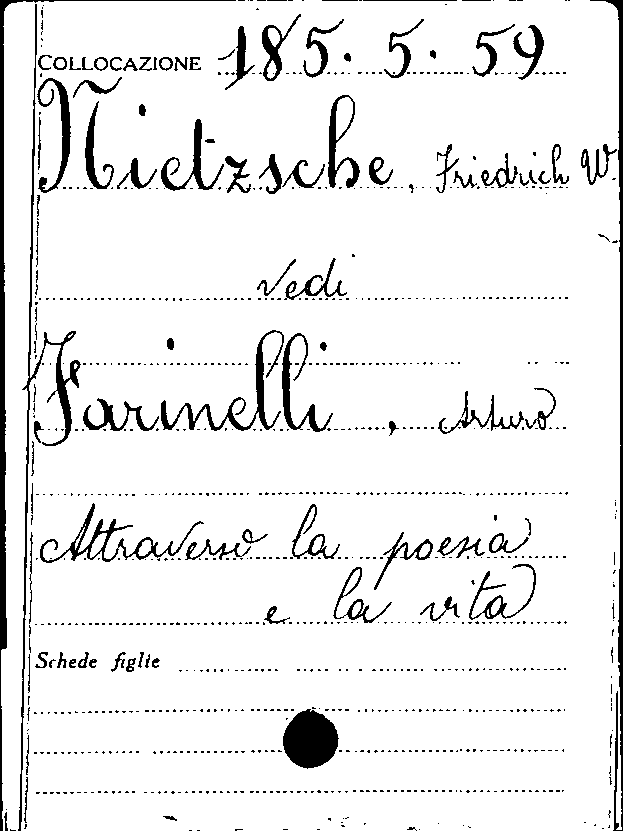 COLLOCAZIONE 185. 5. 59
Nietzsche, Friedrich W.
vedi
Farinelli, Arturo
Attraverso la poesia
e la vita
Schede figlie